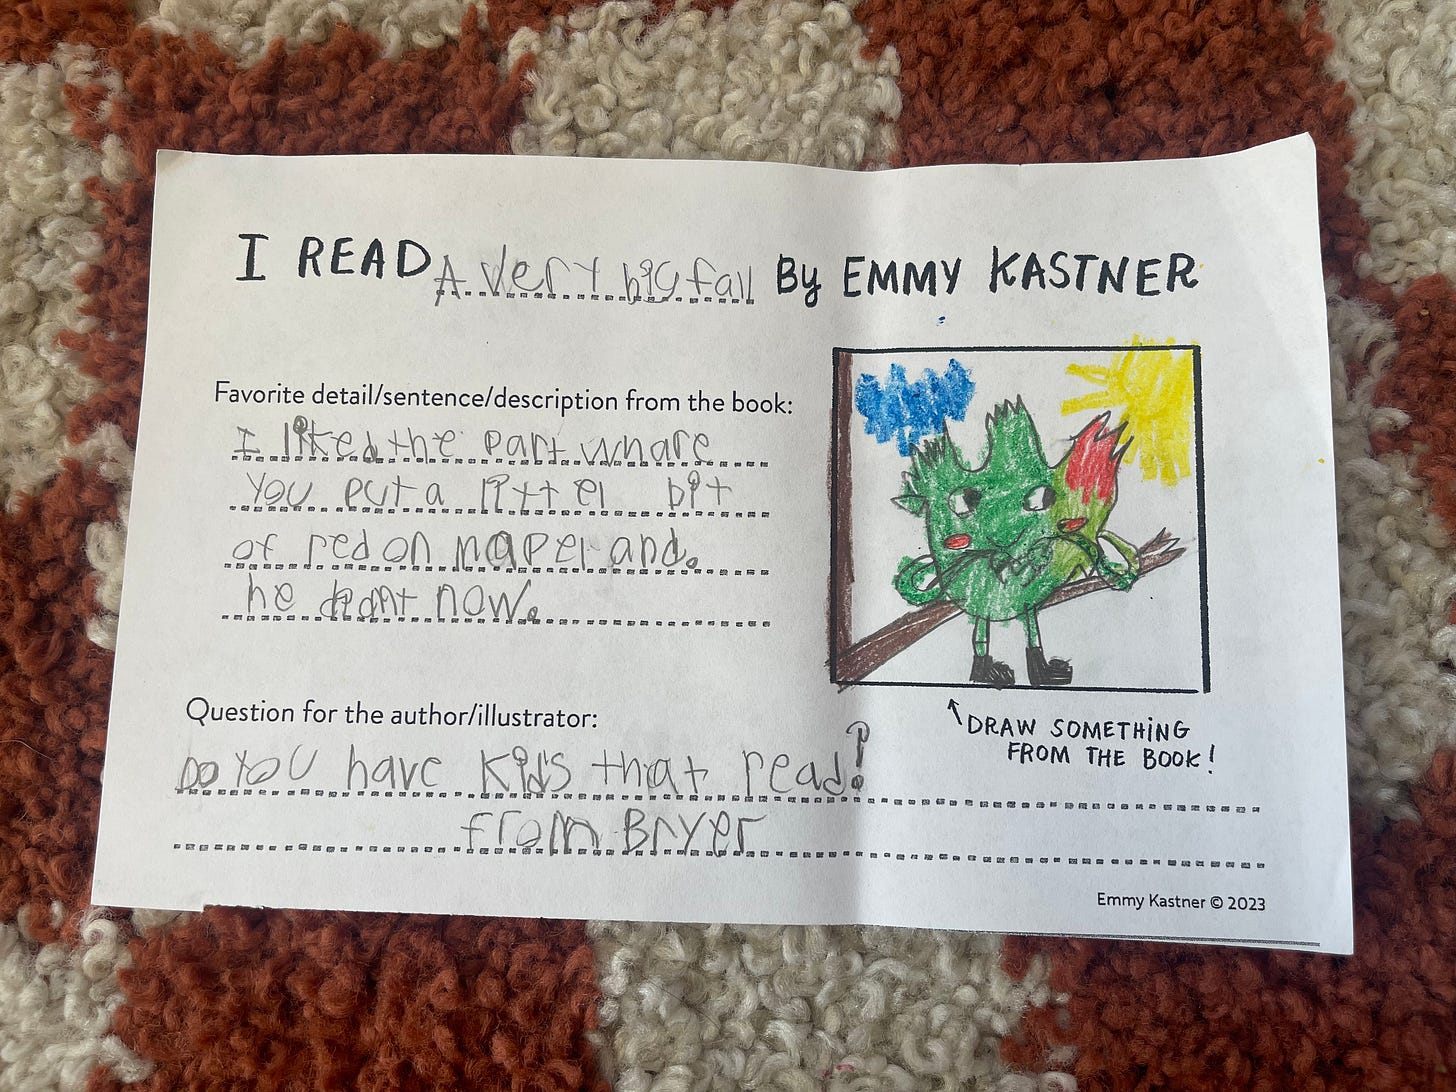 I READ A very big fall By EMMY KASTNER
Favorite detail/sentence/description from the book:
I liked the part whare
you put a littel bit
of red on mapel and.
he didnt now.
Question for the author/illustrator:
Do You have Kids that read?
from Bryer
DRAW SOMETHING
FROM THE BOOK!
Emmy Kastner © 2023